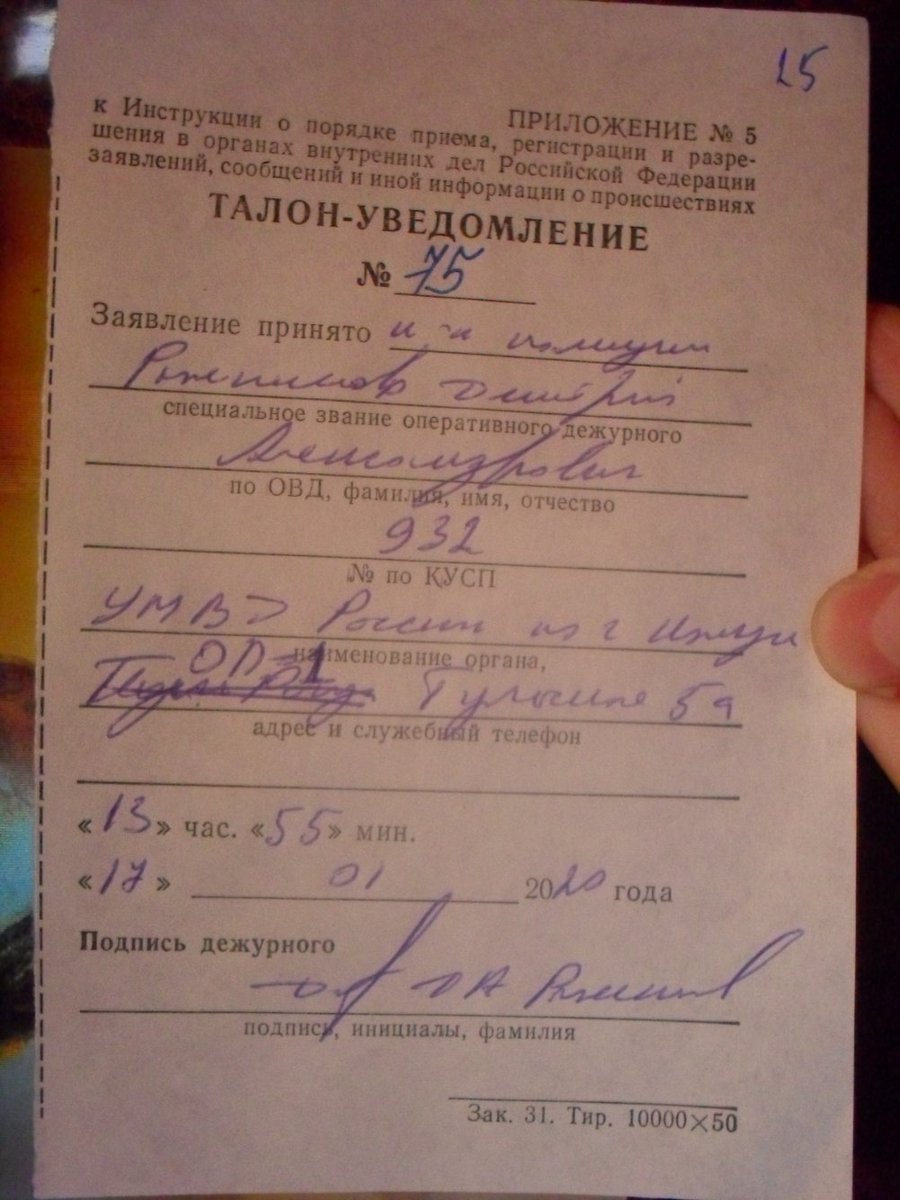 25
ПРИЛОЖЕНИЕ № 5
к Инструкции о порядке приема, регистрации и разре-
шения в органах внутренних дел Российской Федерации
заявлений, сообщений и иной информации о происшествиях
ТАЛОН-УВЕДОМЛЕНИЕ
№ 75
Заявление принято полиции
Дмитрий
специальное звание оперативного дежурного
Александрович
по ОВД, фамилия, имя, отчество
932
№ по КУСП
УМВД России по г
наименование органа,
ОП-1
Тульская 5а
адрес и служебный телефон
«13» час. «55» мин.
«17» 01 2020 года
Подпись дежурного
ДА
подпись, инициалы, фамилия
Зак. 31. Тир. 10000×50